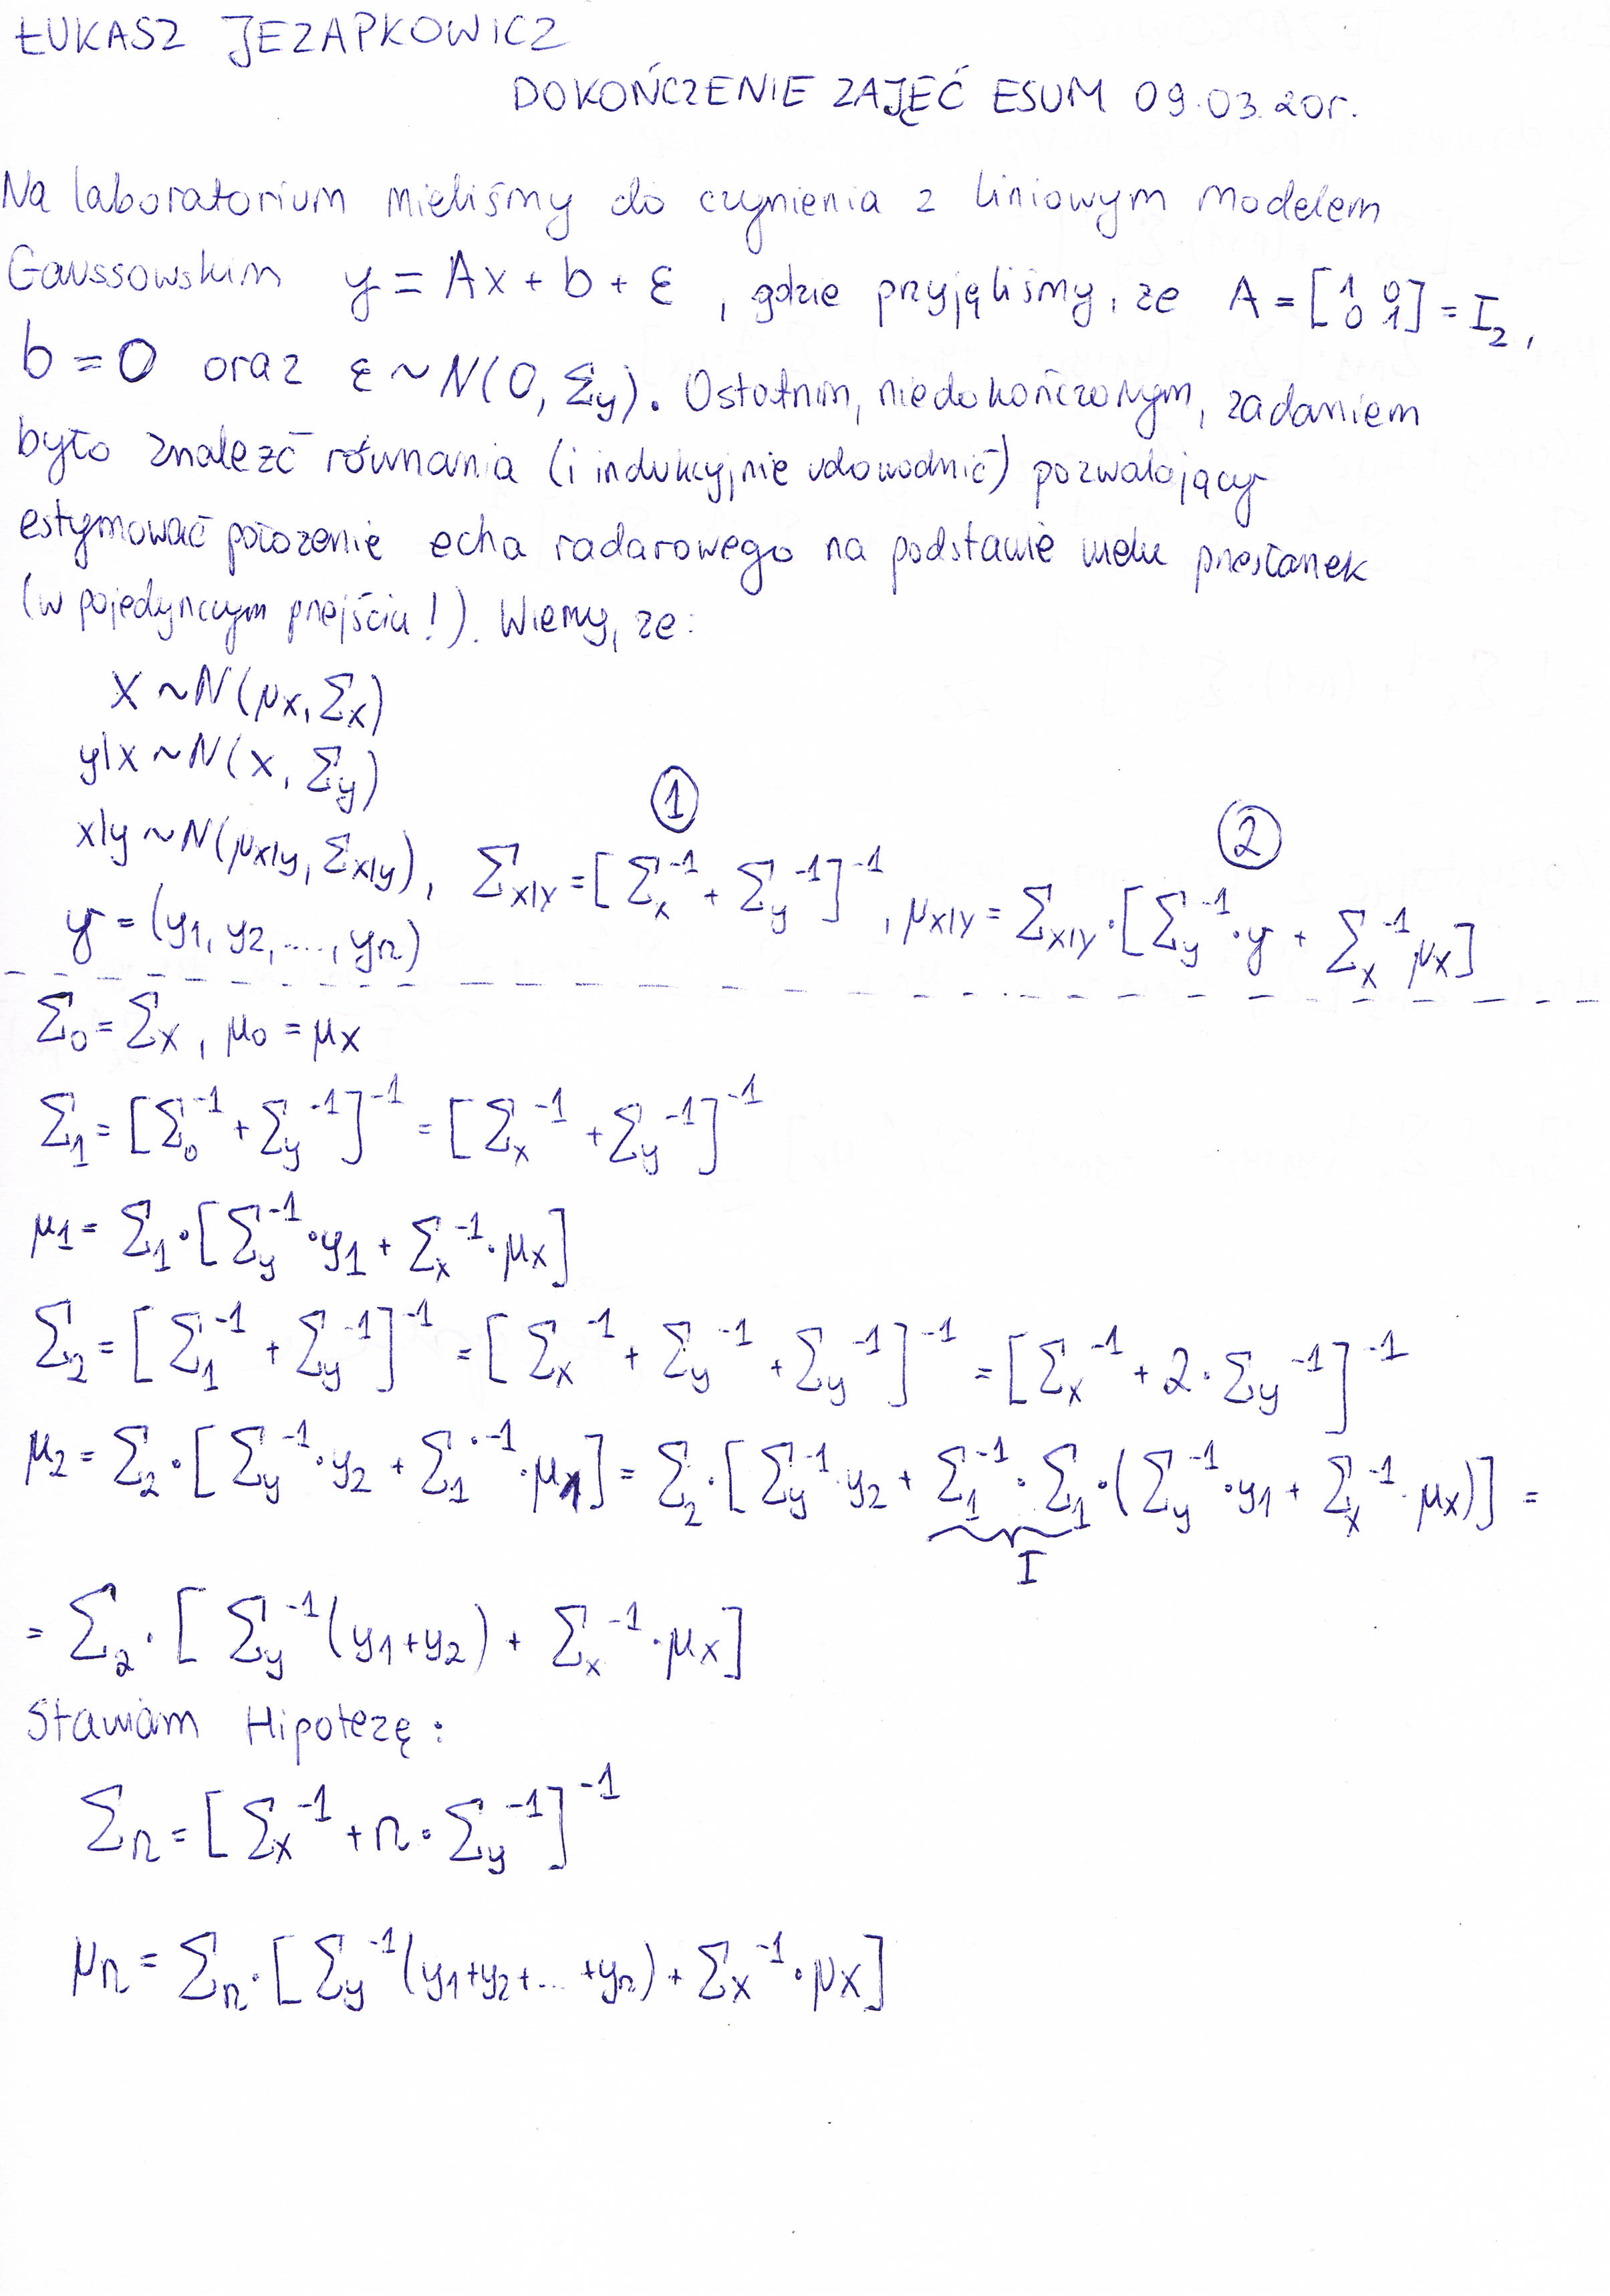 ŁUKASZ JEZAPKOWICZ
DOKOŃCZENIE ZAJĘĆ ESUM 09.03.20r.
Na laboratorium mieliśmy do czynienia z liniowym modelem
Gaussowskim y = Ax + b + ε , gdzie przyjęliśmy, że A = [1 0 0 1] = I₂,
b = 0 oraz ε ~ N(0, Σy). Ostatnim, niedokończonym, zadaniem
było znaleźć równania (i indukcyjnie udowodnić) pozwalający
estymować położenie echa radarowego na podstawie wielu przesłanek
(w pojedynczym przejściu!). Wiemy, że:
X ~ N(μx, Σx)
y|x ~ N(x, Σy)
① ②
x|y ~ N(μx|y, Σx|y), Σx|y = [Σx⁻¹ + Σy⁻¹]⁻¹, μx|y = Σx|y · [Σy⁻¹ · y + Σx⁻¹ μx]
y = (y1, y2, ..., yn)
Σ0 = Σx, μ0 = μx
Σ1 = [Σ0⁻¹ + Σy⁻¹]⁻¹ = [Σx⁻¹ + Σy⁻¹]⁻¹
μ1 = Σ1 · [Σy⁻¹ · y1 + Σx⁻¹ · μx]
Σ2 = [Σ1⁻¹ + Σy⁻¹]⁻¹ = [Σx⁻¹ + Σy⁻¹ + Σy⁻¹]⁻¹ = [Σx⁻¹ + 2 · Σy⁻¹]⁻¹
μ2 = Σ2 · [Σy⁻¹ · y2 + Σ1⁻¹ · μ1] = Σ2 · [Σy⁻¹ y2 + Σ1⁻¹ · Σ1 · (Σy⁻¹ · y1 + Σx⁻¹ · μx)] =
I
= Σ2 · [Σy⁻¹(y1+y2) + Σx⁻¹ · μx]
Stawiam Hipotezę:
Σn = [Σx⁻¹ + n · Σy⁻¹]⁻¹
μn = Σn · [Σy⁻¹(y1+y2+...+yn) + Σx⁻¹ · μx]